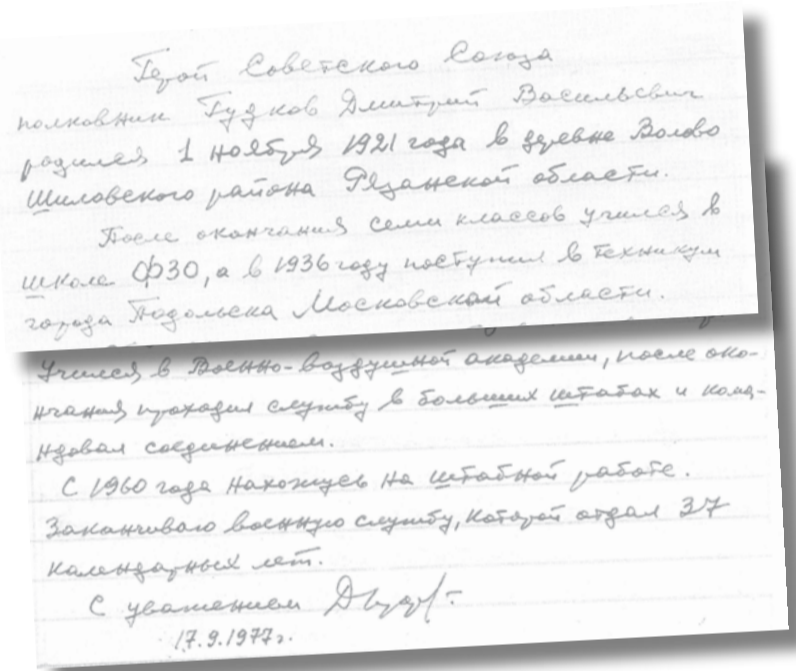 Герой Советского Союза
полковник Гудков Дмитрий Васильевич
родился 1 ноября 1921 года в деревне Волово
Шиловского района Рязанской области.
После окончания семи классов учился в
школе ФЗО, а в 1936 году поступил в техникум
города Подольска Московской области.
Учился в Военно-воздушной академии, после око-
нчания проходил службу в больших штабах и кома-
ндовал соединением.
С 1960 года нахожусь на штабной работе.
Заканчиваю военную службу, которой отдал 37
календарных лет.
С уважением
17.9.1977г.